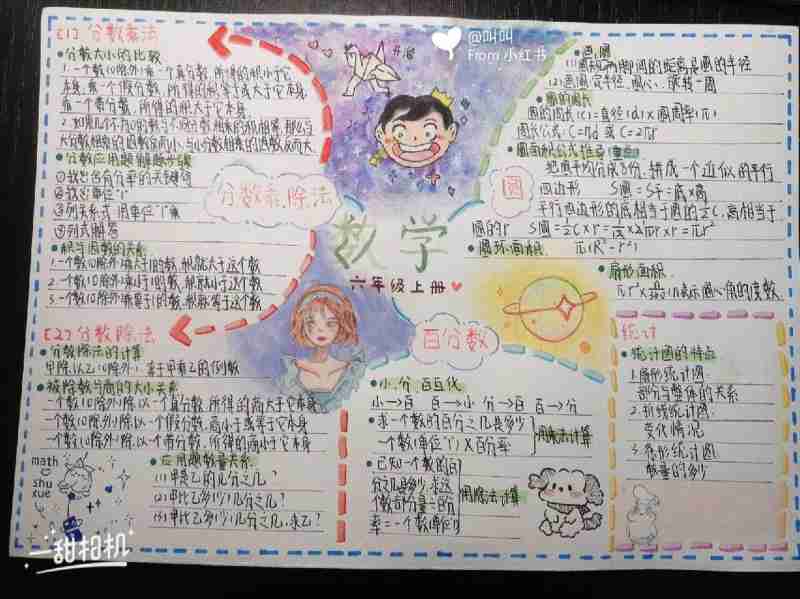 [1]分数乘法
•分数大小的比较
1.一个数(0除外)乘一个真分数,所得的积小于它
本身,乘一个假分数,所得的积等于或大于它本身,
乘一个带分数,所得的积大于它本身.
•分数应用题解题步骤
①找出含有分率的关键句
②找出单位"1"
④列式解答
•积与因数的关系
一个数(0除外)乘大于1的数,积就大于这个数
一个数(0除外)乘小于1的数,积就小于这个数
一个数(0除外)乘等于1的数,积就等于这个数
[2]分数除法
•分数除法的计算
甲除以乙(0除外),等于甲乘乙的倒数
•被除数与商的大小关系
一个数(0除外)除以一个真分数,所得的商大于它本身
一个数(0除外)除以一个假分数,商小于或等于它本身
一个数(0除外)除以一个带分数,所得的商小于它本身
math
shu
xue
•应用题数量关系
(1)甲是乙的几分之几?
(2)甲比乙多少几分之几?
(3)甲比乙多少几分之几,求乙?
一甜相机
@叫叫
From 小红书
分数乘.除法
数学
六年级上册
圆
百分数
•画圆
(1)圆规两脚间的距离是圆的半径
(2)画圆定半径,圆心,旋转一周
•圆的周长
圆的周长(C)=直径(d)×圆周率(π)
周长公式:C=πd 或 C=2πr
•圆面积公式推导(重点)
把圆平均分成若份,拼成一个近似的平行
四边形
平行四边形的底相当于圆的½C,高相当于
圆的r
•圆环面积
π(R²-r²)
•扇形面积
•小.分.百互化
小→百 百→小 分→百 百→分
•求一个数的百分之几是多少
一个数(单位"1")×百分率
用乘法计算
•已知一个数的百
分之几是多少,求这
个数部分量÷百分
率=一个数(单位"1")
用除法计算
统计
•统计图的特点
1.扇形统计图:
部分与整体的关系
2.折线统计图:
变化情况
3.条形统计图:
数量的多少